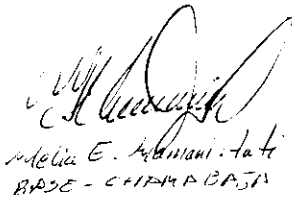 Melia E. Mamani. Tati
BASE - CHAMABAJA